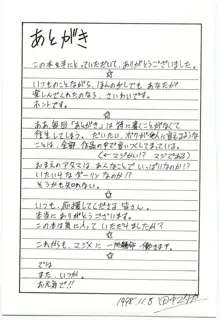 あとがき
この本を手にとっていただいて、ありがとうございました。
☆
いつものことながら、ほんの少しでも あなたが
楽しんでくれたのなら、さいわいです。
ホントです。
☆
ああ、毎回「あとがき」は 特に書くことがなくて
往生してしまう。だいたい、ボクが人に言えるような
ことは、全部 作品の中で言いつくしてまっている。
(← マジかい!? マジである)
おまえのアタマは、あんなことでいっぱいなのか!?
いたいけなダーリンなのか!?
そうかも知れない。
☆
いつも、応援してくださる皆さん。
本当にありがとうございます。
この本は気に入っていただけましたか?
☆
これからも、マジメに 働きます。
では
また、いつか。
お元気で!!
1995.11.5